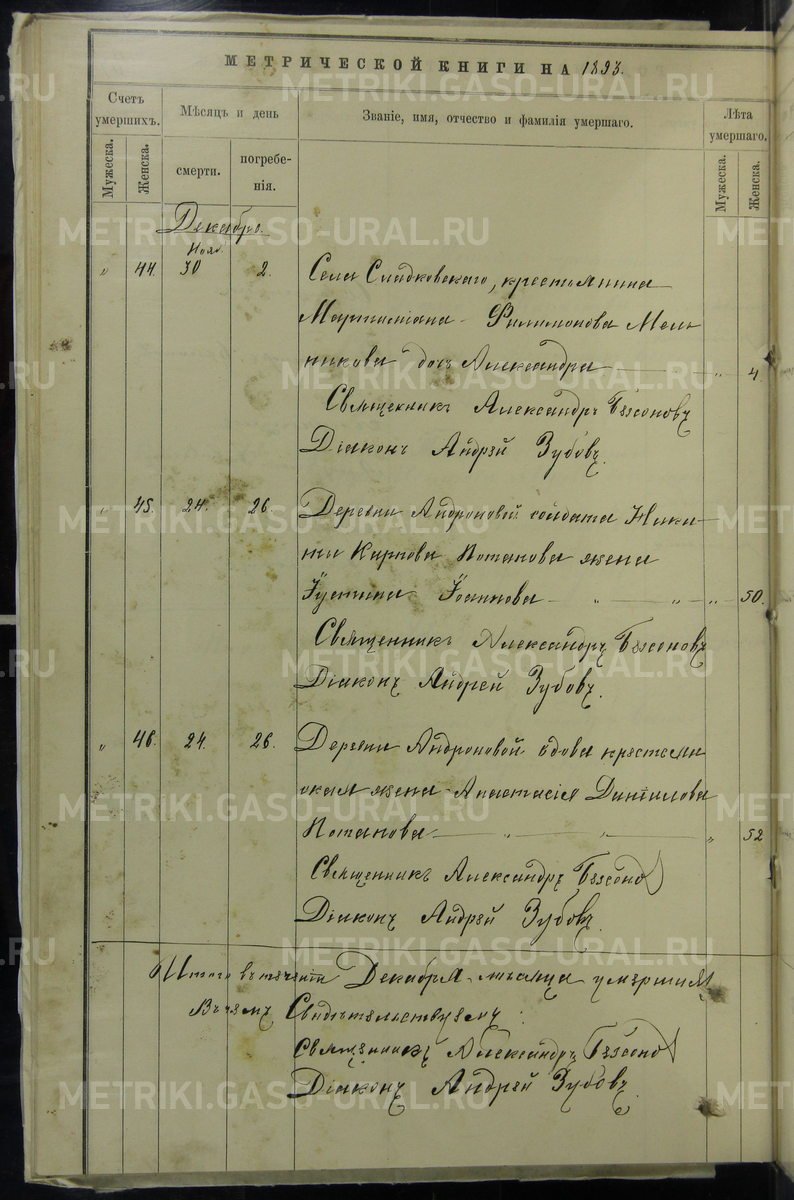 МЕТРИЧЕСКОЙ КНИГИ НА 1893.
Счетъ умершихъ.
Мѣсяцъ и день
Званіе, имя, отчество и фамилія умершаго.
Лѣта умершаго.
Мужеска.
Женска.
смерти.
погребе-
нія.
Мужеска.
Женска.
Декабрь
Нояб.
„ 44 30 2. Села Сладковскаго, крестьянина
Мартиніана Филимонова Мель
никова дочь Александра „ 4
Священникъ Александръ Бессоновъ
Діаконъ Андрей Зубовъ.
„ 45. 24. 26. Деревни Андроновой солдата Ники
ты Карпова Потапова жена
Іустина Іоаннова „ „ „ 50.
Священникъ Александръ Бессоновъ
Діаконъ Андрей Зубовъ.
„ 46. 24. 26. Деревни Андроновой вдова крестьян
ская жена Анастасія Даніилова
Потапова „ „ „ 52
Священникъ Александръ Бессонов
Діаконъ Андрей Зубовъ.
Итого въ теченіи Декабря мѣсяца умершихъ
Въ чемъ Свидѣтельствуемъ:
Священникъ Александръ Бессонов
Діаконъ Андрей Зубовъ.
METRIKI.GASO-URAL.RU